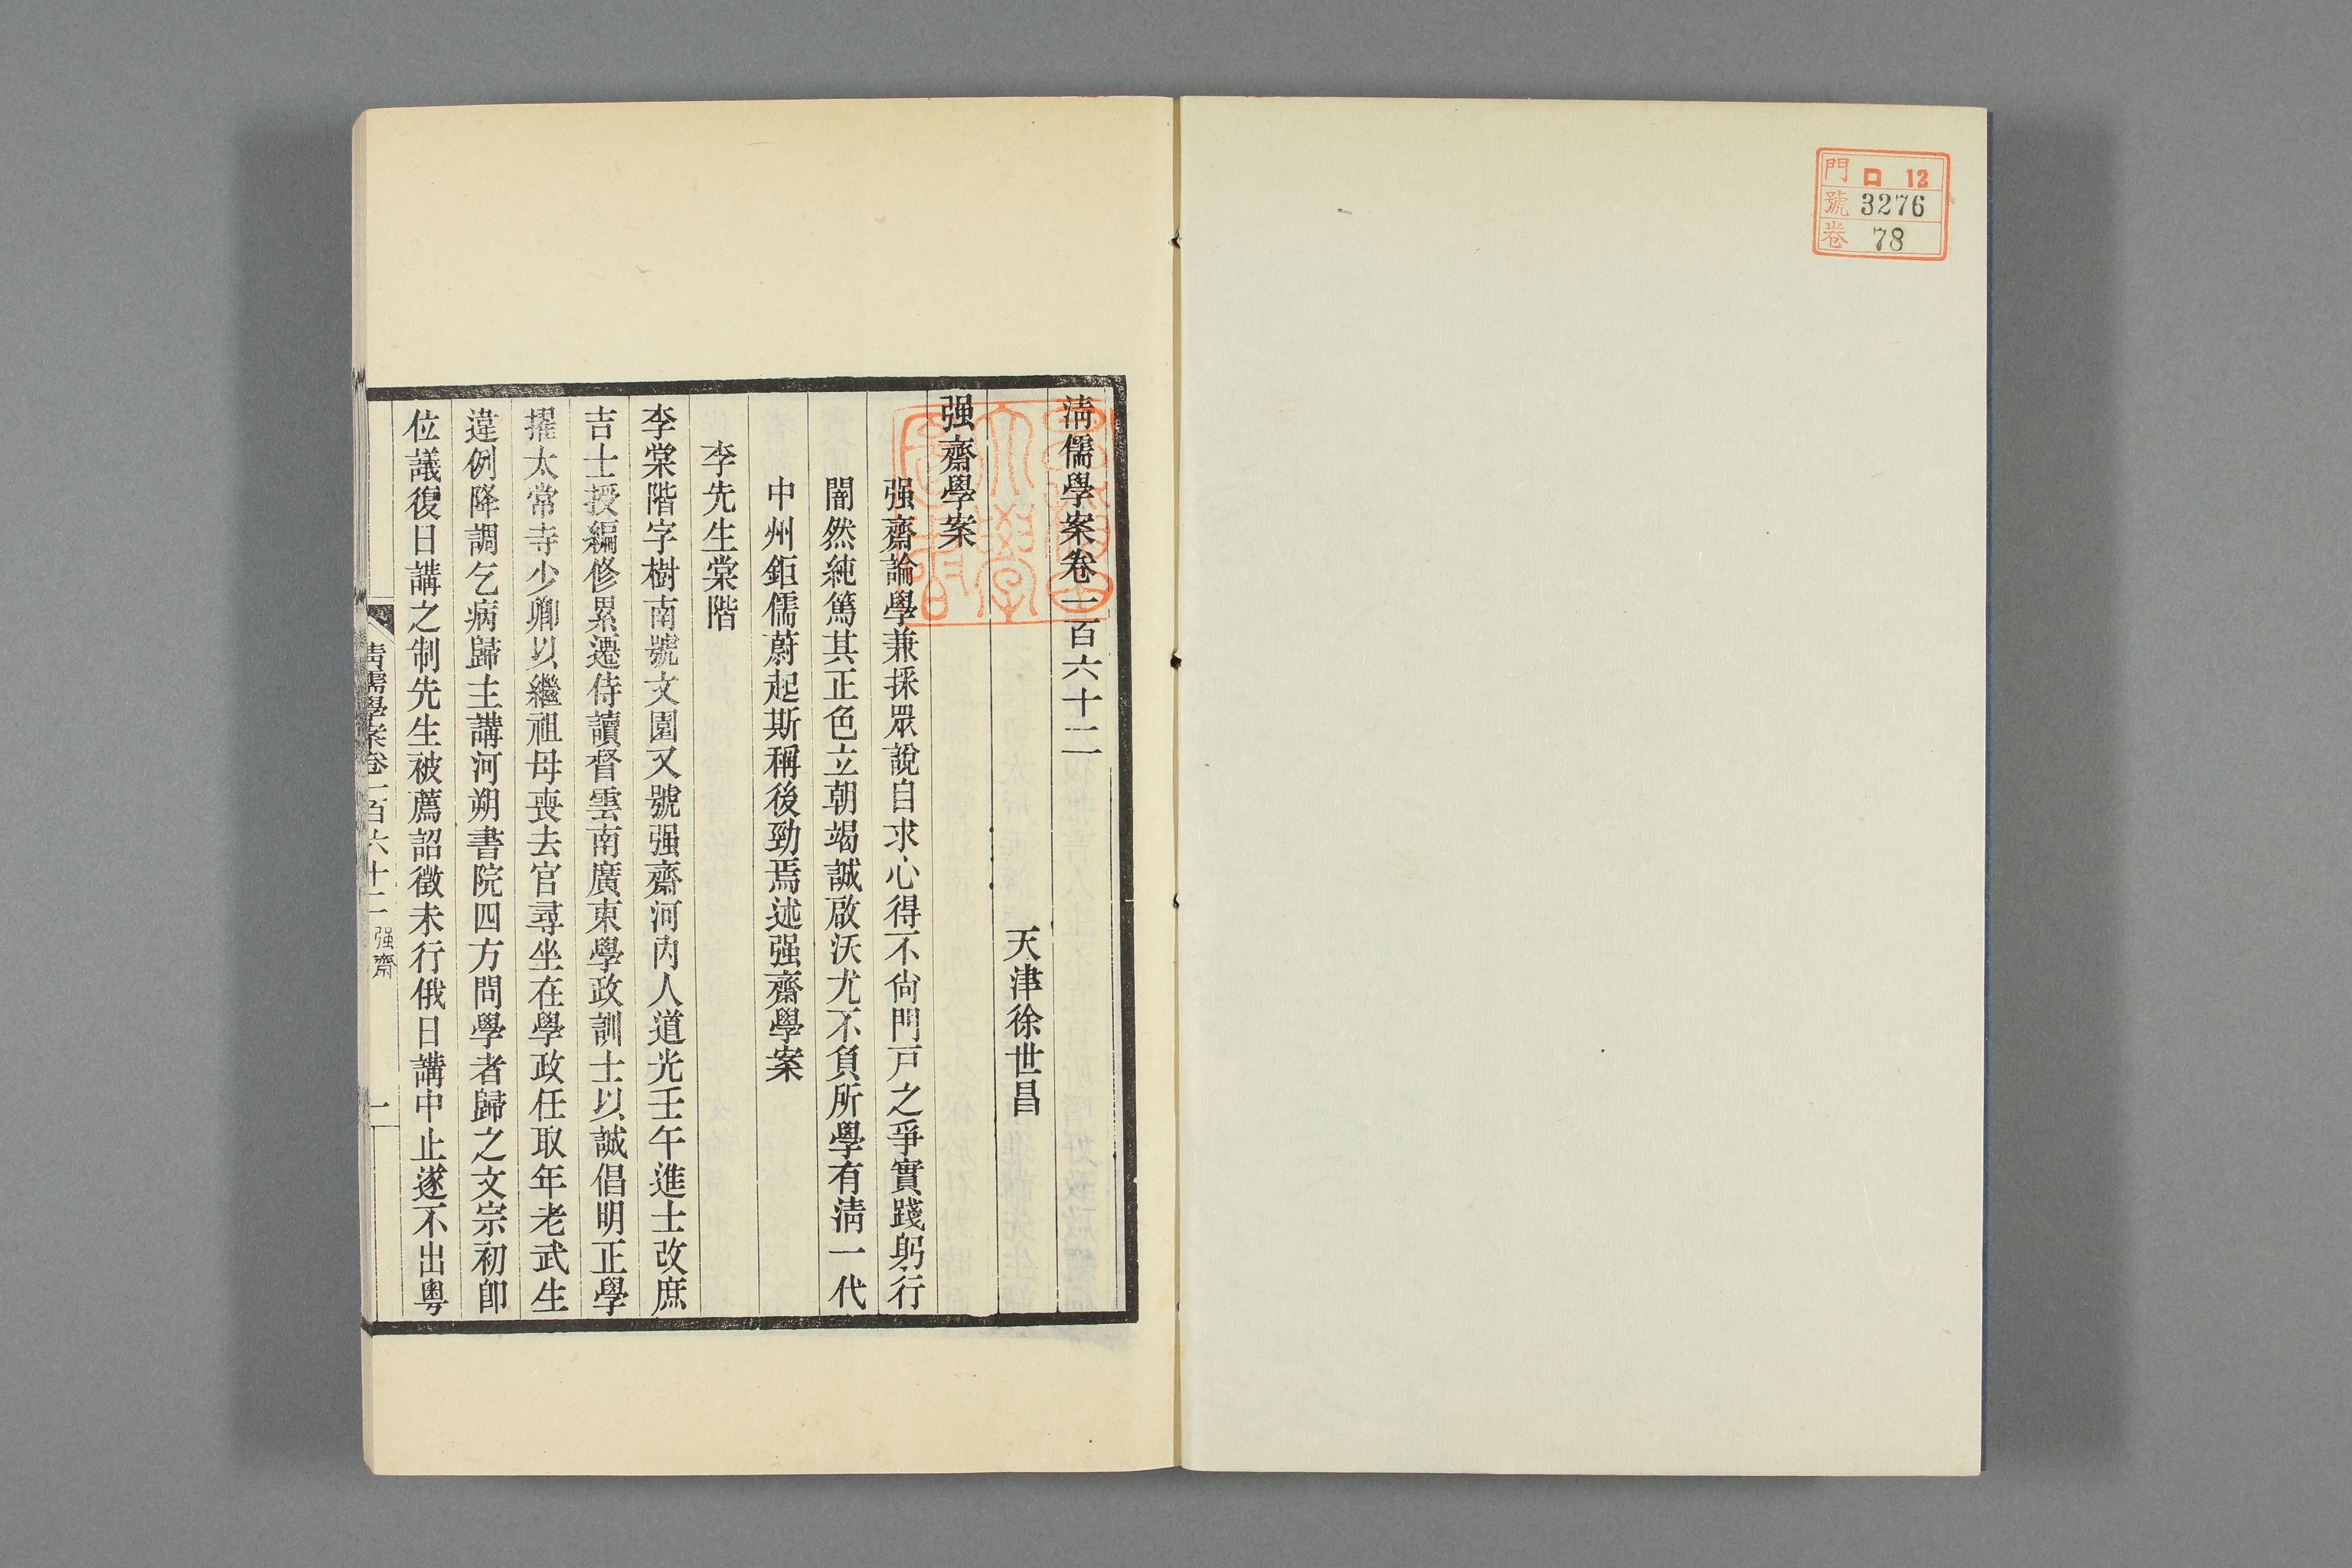 門 口 12
號 3276
卷 78
淸儒學案卷一百六十二
天津徐世昌
强齋學案
强齋論學兼採眾說自求心得不尙門戸之爭實踐躬行
闇然純篤其正色立朝竭誠啟沃尤不負所學有淸一代
中州鉅儒蔚起斯稱後勁焉述强齋學案
李先生棠階
李棠階字樹南號文園又號强齋河內人道光壬午進士改庶
吉士授編修累遷侍讀督雲南廣東學政訓士以誠倡明正學
擢太常寺少卿以繼祖母喪去官尋坐在學政任取年老武生
違例降調乞病歸主講河朔書院四方問學者歸之文宗初卽
位議復日講之制先生被薦詔徵未行俄日講中止遂不出粵
淸儒學案卷一百六十二 强齋 一